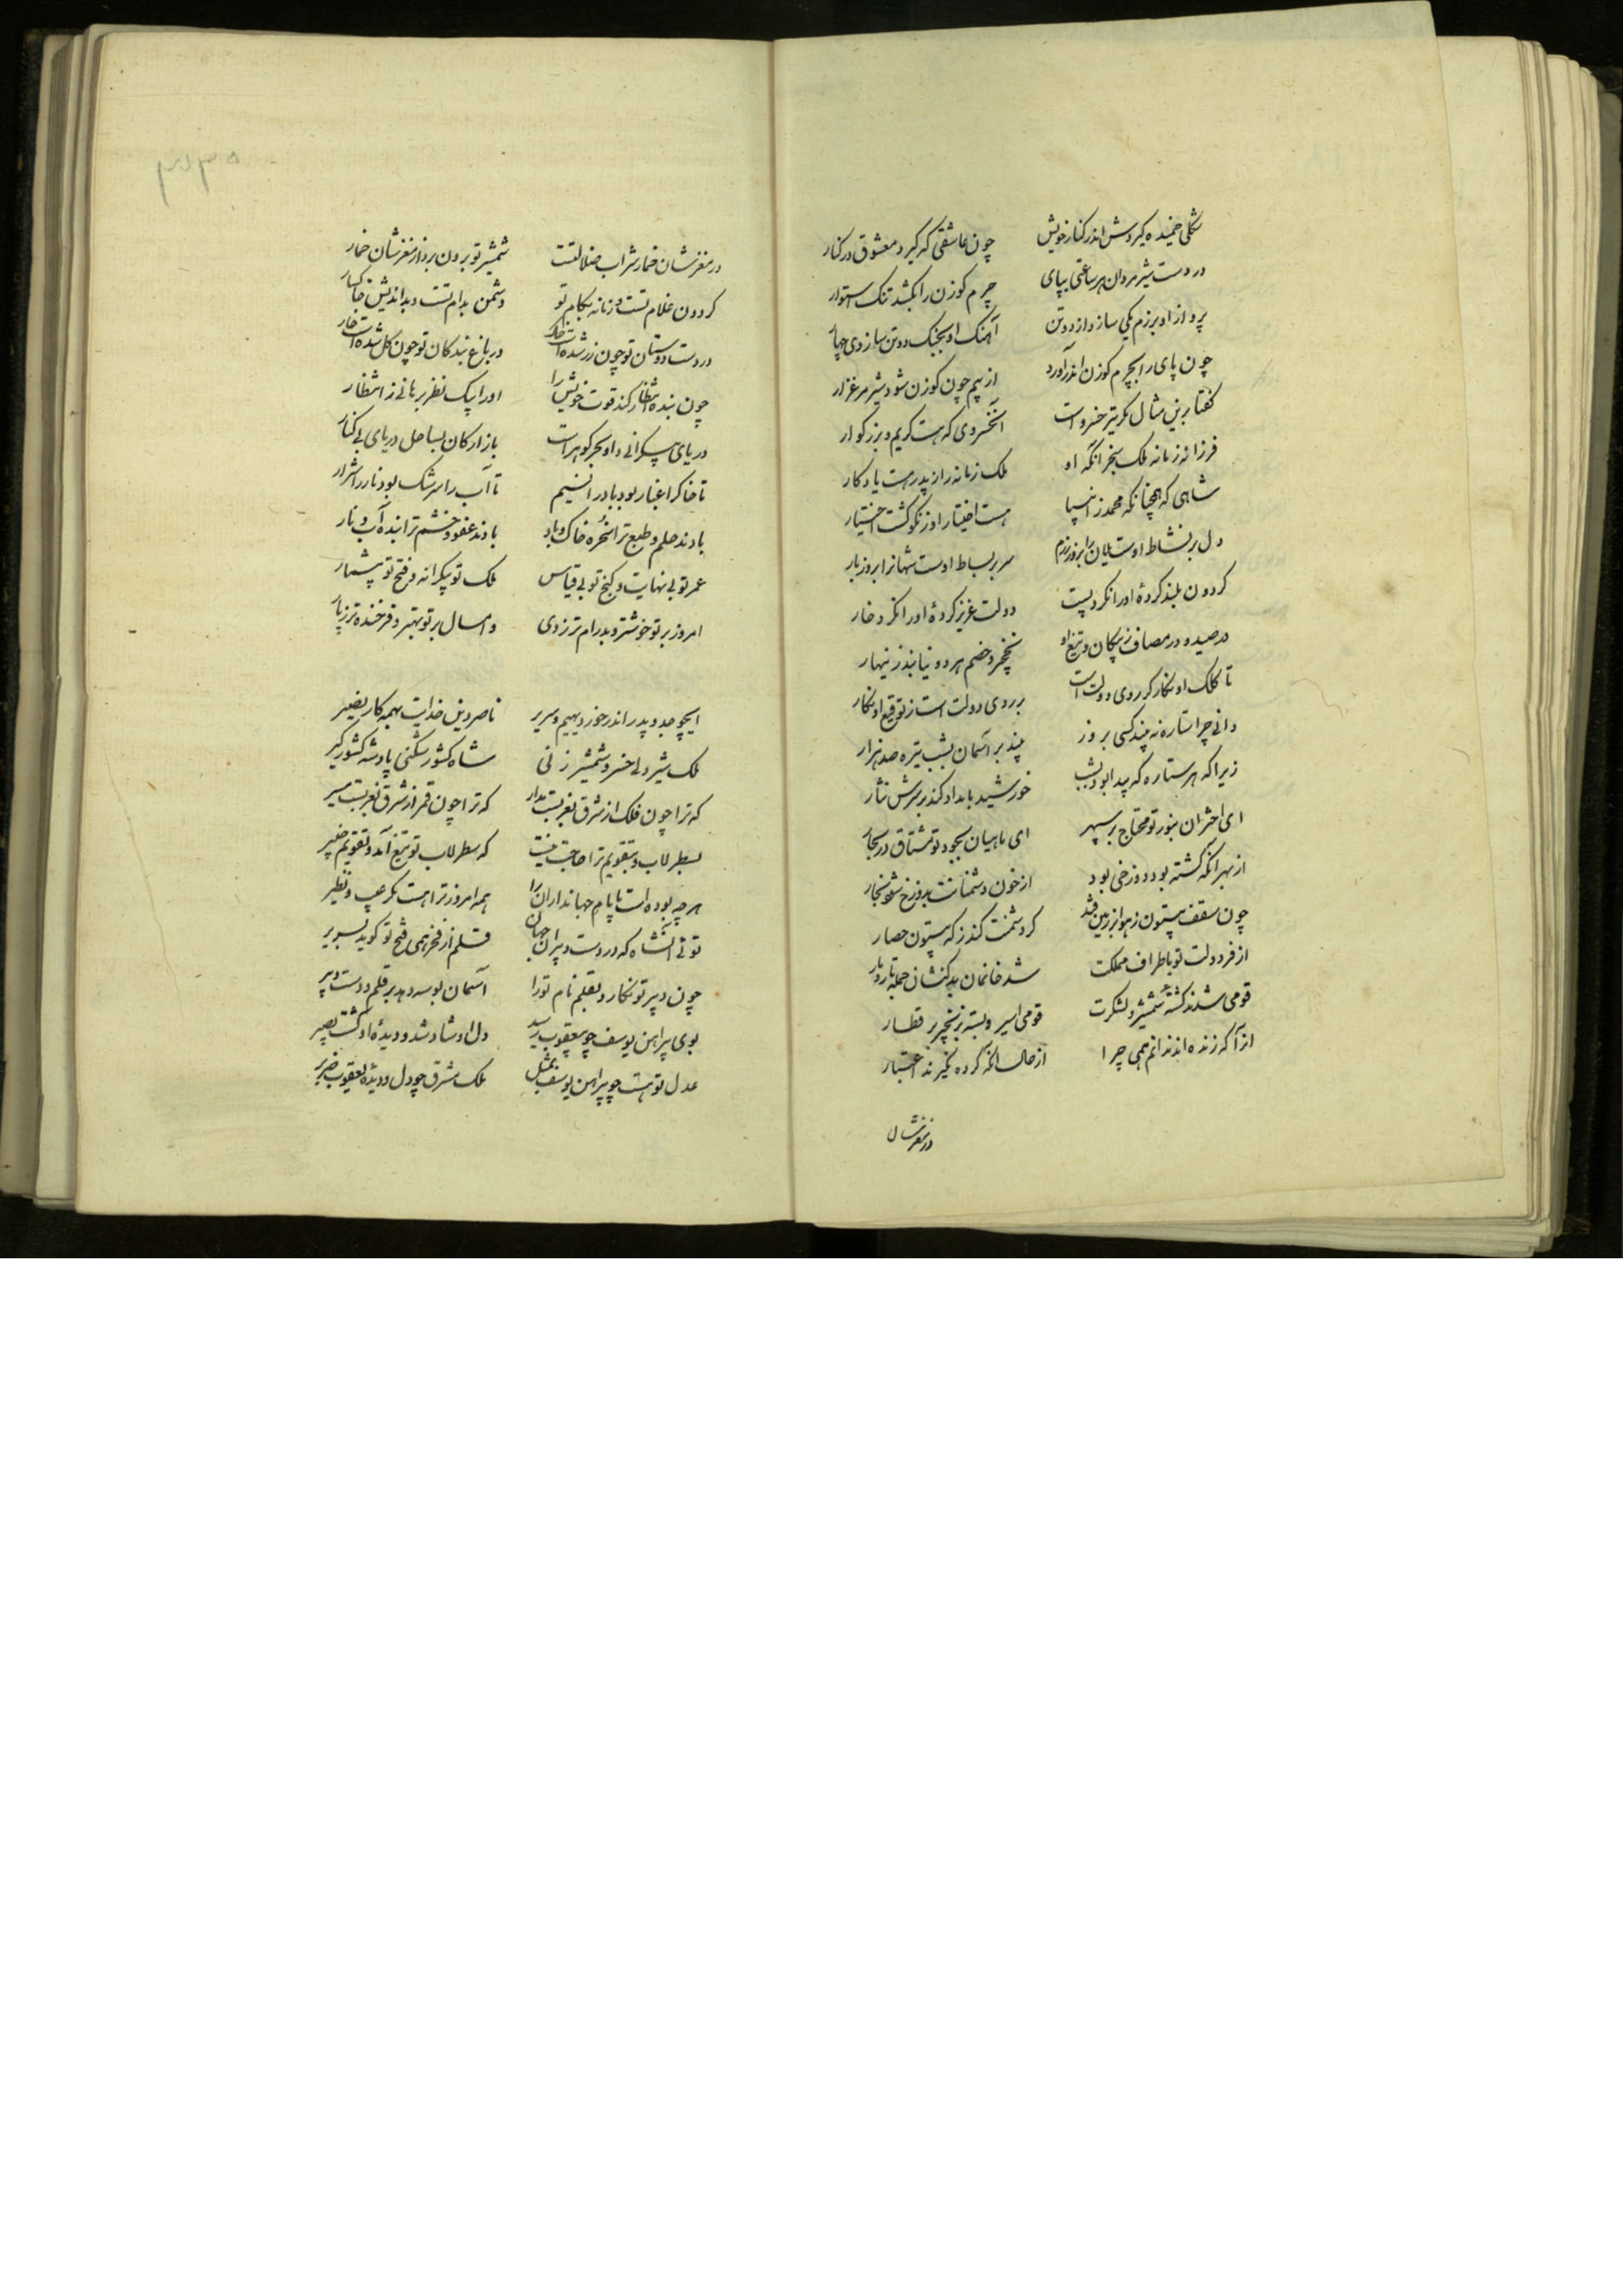 شکلی خمیده گیردش اندر کنار خویش چون عاشقی که گیرد معشوق در کنار
در دست شیر مردان هر ساعتی بپای چرم گوزن را بکشد تنک استوار
پرواز او برزم یکی سازد از دو تن آهنک او بجنک دو تن سازد وی چهار
چون پای را بچرم گوزن اندر آورد از بیم چون گوزن شود شیر مرغزار
گفتا برین مثال مگر تیر خسرواست آنخسروی که هست کریم و بزرگوار
فرزانه زمانه ملک سنجر آنکه او ملک زمانه را ز پدر هست یادگار
شاهی که همچنانکه محمد ز انبیا هست اختیار او ز نکو گشت اختیار
دل بر نشاط اوست یلان را بروز رزم سر بر بساط اوست شهانرا بروز بار
گردون بلند کردهٔ او را نکرد پست دولت عزیز کردهٔ او را نکرد خار
در صید و در مصاف ز پیکان و تیغ او نخچیر و خصم هر دو نیابند زینهار
تا کلک او نگارگر روی دولت است بر روی دولت است ز توقیع او نگار
دانی چرا ستاره نه بیند کسی بروز بیند بر آسمان بشب تیره صد هزار
زیرا که هر ستاره که پیدا بود بشب خورشید بامداد کند بر سرش نثار
ای اختران بنور تو محتاج بر سپهر ای ماهیان بجود تو مشتاق در بحار
از بهر آنکه گشته بود دوزخی بود از خون دشمنانت بدوزخ شود بخار
چون سقف بیستون ز هوا بر زمین فتد گر دشمنت کند ز که بیستون حصار
از فر دولت تو باطراف مملکت شد خانمان بدکنشان جمله تار و مار
قومی شدند کشته شمشیر لشکرت قومی اسیر و بسته بزنجیر بر قطار
از آنکه زنده اند ندانم همی چرا از حال آنکه مرده نگیرند اعتبار
در مغزشان
در مغزشان خمار شراب ضلالتست شمشیر تو برون برد از مغزشان خمار
گردون غلام تست و زمانه بکام تو دشمن بدام تست و بداندیش خاکسار
در دست دوستان تو چون زر شده است خاک در باغ بندگان تو چون گل شده است خار
چون بنده انتظار کند قوت خویش را او را بیک نظر برهانی ز انتظار
دریای بیکرانی و او بحر گوهر است بازارگان بساحل دریای بی کنار
تا خاک را غبار بود باد را نسیم تا آب را سرشک بود نار را شرار
بادند حلم و طبع ترا سخره خاک و باد بادند عفو و خشم ترا بنده آب و نار
عمر تو بی نهایت و گنج تو بی قیاس ملک تو بیکرانه و فتح تو بیشمار
امروز بر تو خوشتر و پدرام تر ز دی و امسال بر تو بهتر و فرخنده تر ز پار
ایچو جد و پدر اندر خور دیهیم و سریر ناصر دین خدایت بهمه کار نصیر
ملک شیر دلی خسرو شمشیر زنی شاه کشور شکنی پادشه کشور گیر
که ترا چون فلک از شرق بغربست مدار که ترا چون قمر از شرق بغربست مسیر
بسطرلاب و بتقویم ترا حاجت نیست که سطرلاب تو تیغ آمد و تقویم ضمیر
هر چه بوده است بایام جهانداران را همه امروز ترا هست مگر عیب و نظیر
توئی آنشاه که در دست دبیران جهان قلم از فخر همی فتح تو گوید بصریر
چون دبیر تو نگارد بقلم نام تو را آسمان بوسه دهد بر قلم و دست دبیر
بوی پیراهن یوسف چو بیعقوب رسید دل او شاد شد و دیدهٔ او گشت بصیر
عدل تو هست چو پیراهن یوسف بمثل ملک مشرق چو دل و دیدهٔ یعقوب ضریر